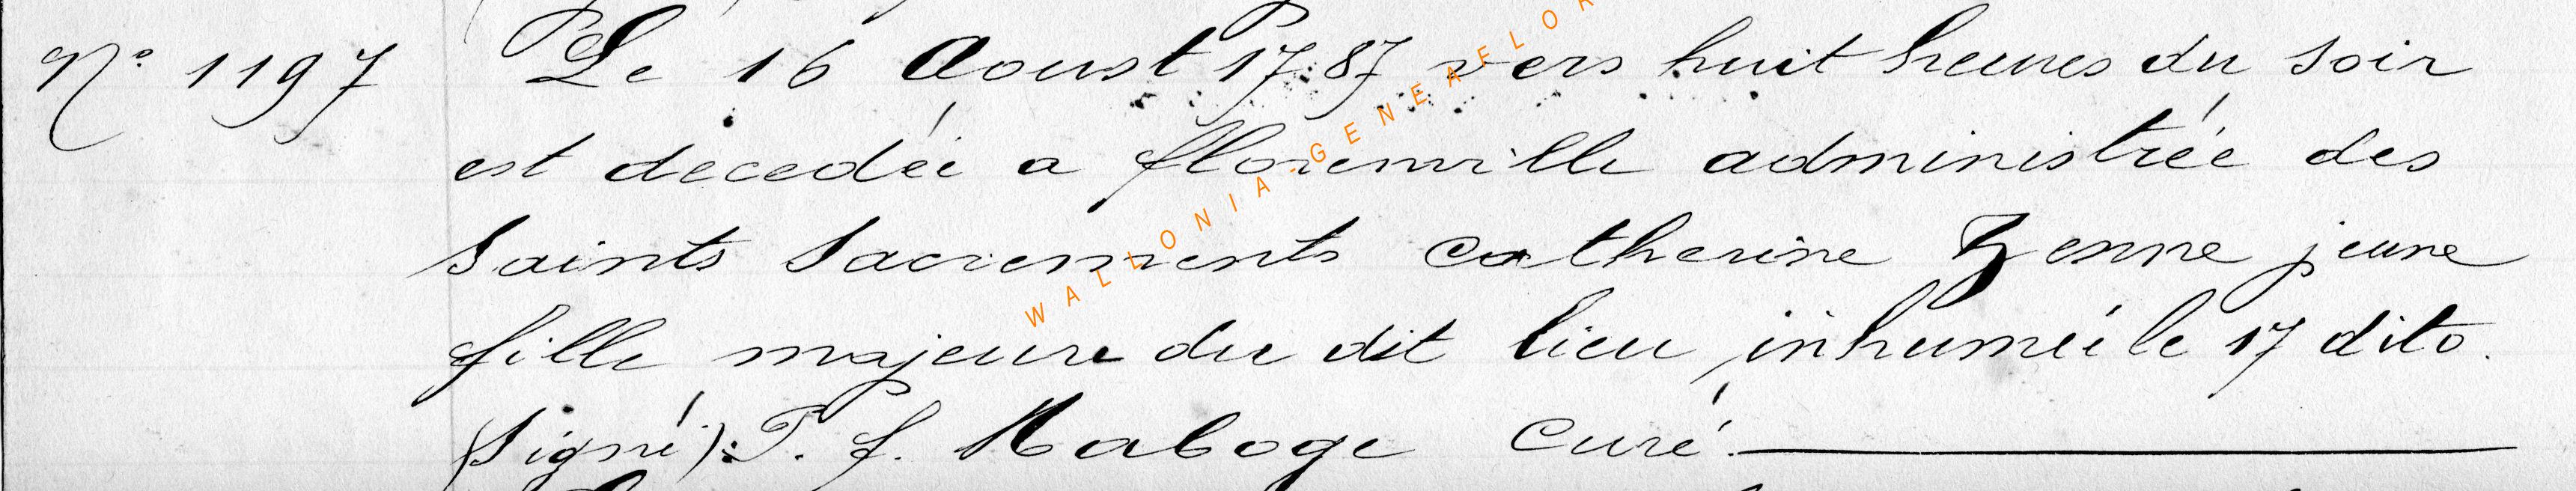 N° 1197 Le 16 Aoust 1787 vers huit heures du soir
est decedée a florenville administrée des
Saints Sacrements catherine Henne jeune
fille majeure du dit lieu, inhumée le 17 dito.
(Signé): T. f. Maboge Curé.
WALLONIA-GENEAFLOR